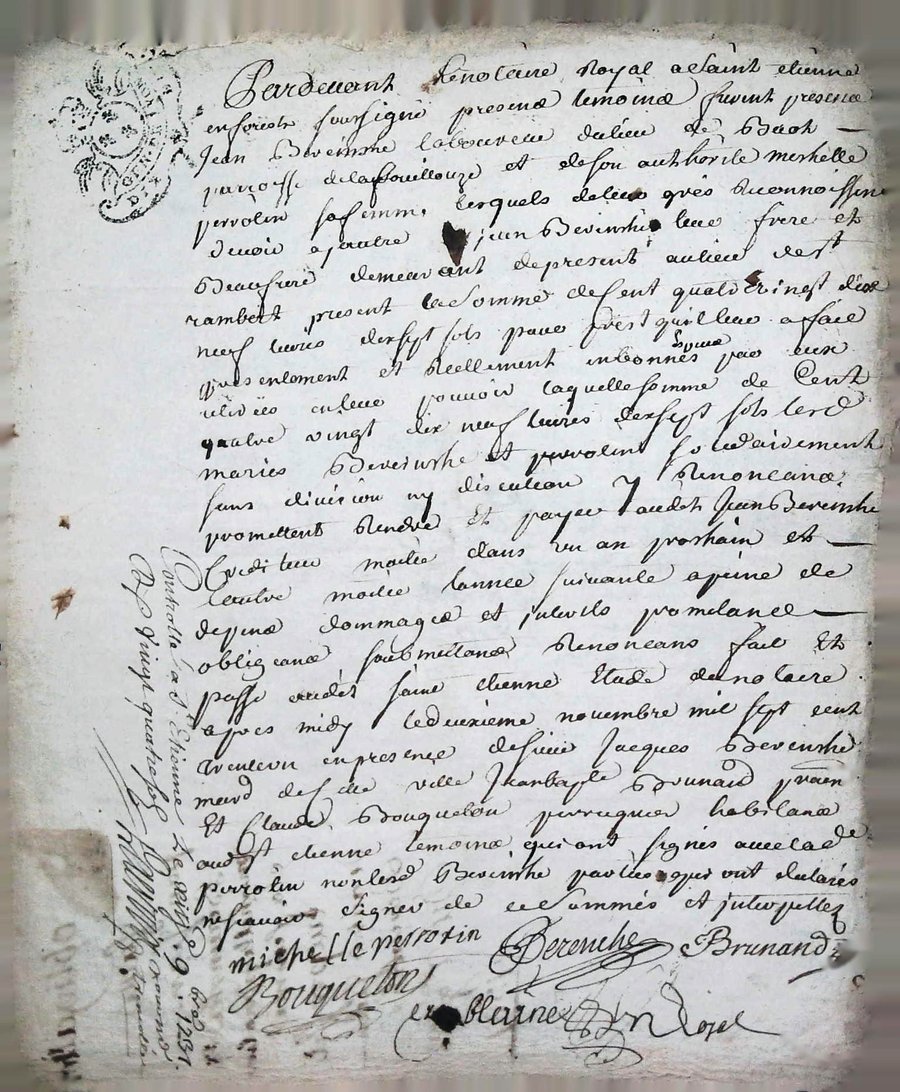 Pardevant le notaire Royal a Saint etienne
en forests soussigné presens temoins furent presens
Jean Berinshe laboureur du lieu de
parroisse de lafouillouze et de son authorité mishelle
perrotin sa femme lesquels de leur grés Reconnoissent
devoir a jean Berinshe leur frere et
Beaufrere demeurant de present au lieu de st
rambert present la somme de Cent quatre vingt dix
neuf livres dix sept sols pour prest qu'il leur a fait
presentement et Reellement en bonnes espèces par eux
en leur pouvoir laquelle somme de Cent
quatre vingt dix neuf livres dix sept sols lesd
mariés Berinshe et perrotin solidairement
sans division ny discution y Renonceans
promettent Rendre Et payer audit Jean Berinshe
Crediteur moitié dans un an prochain et
l'autre moitié l'année suivante a peine de
depens dommages et promettans
obligeans soubmettans Renonceans fait Et
passé audit saint etienne Etude du notaire
apres midy le deuxieme novembre mil sept cent
trente un en presence de sieur Jacques Berinshe
marchd de cette ville Jean baptte Brunand
Et Claude Bouqueton perruquier habitans
aud st etienne temoins qui ont signés avec lad
perrotin non lesd Berinshe parties qui ont declarés
ne scavoir signer de ce sommés et
michelle perrotin Berenche Brunand
Bouqueton
Royal
Controllé a St Etienne Le 9 1731
Rs Vingt quatre sols
MOY
GEN
DIX